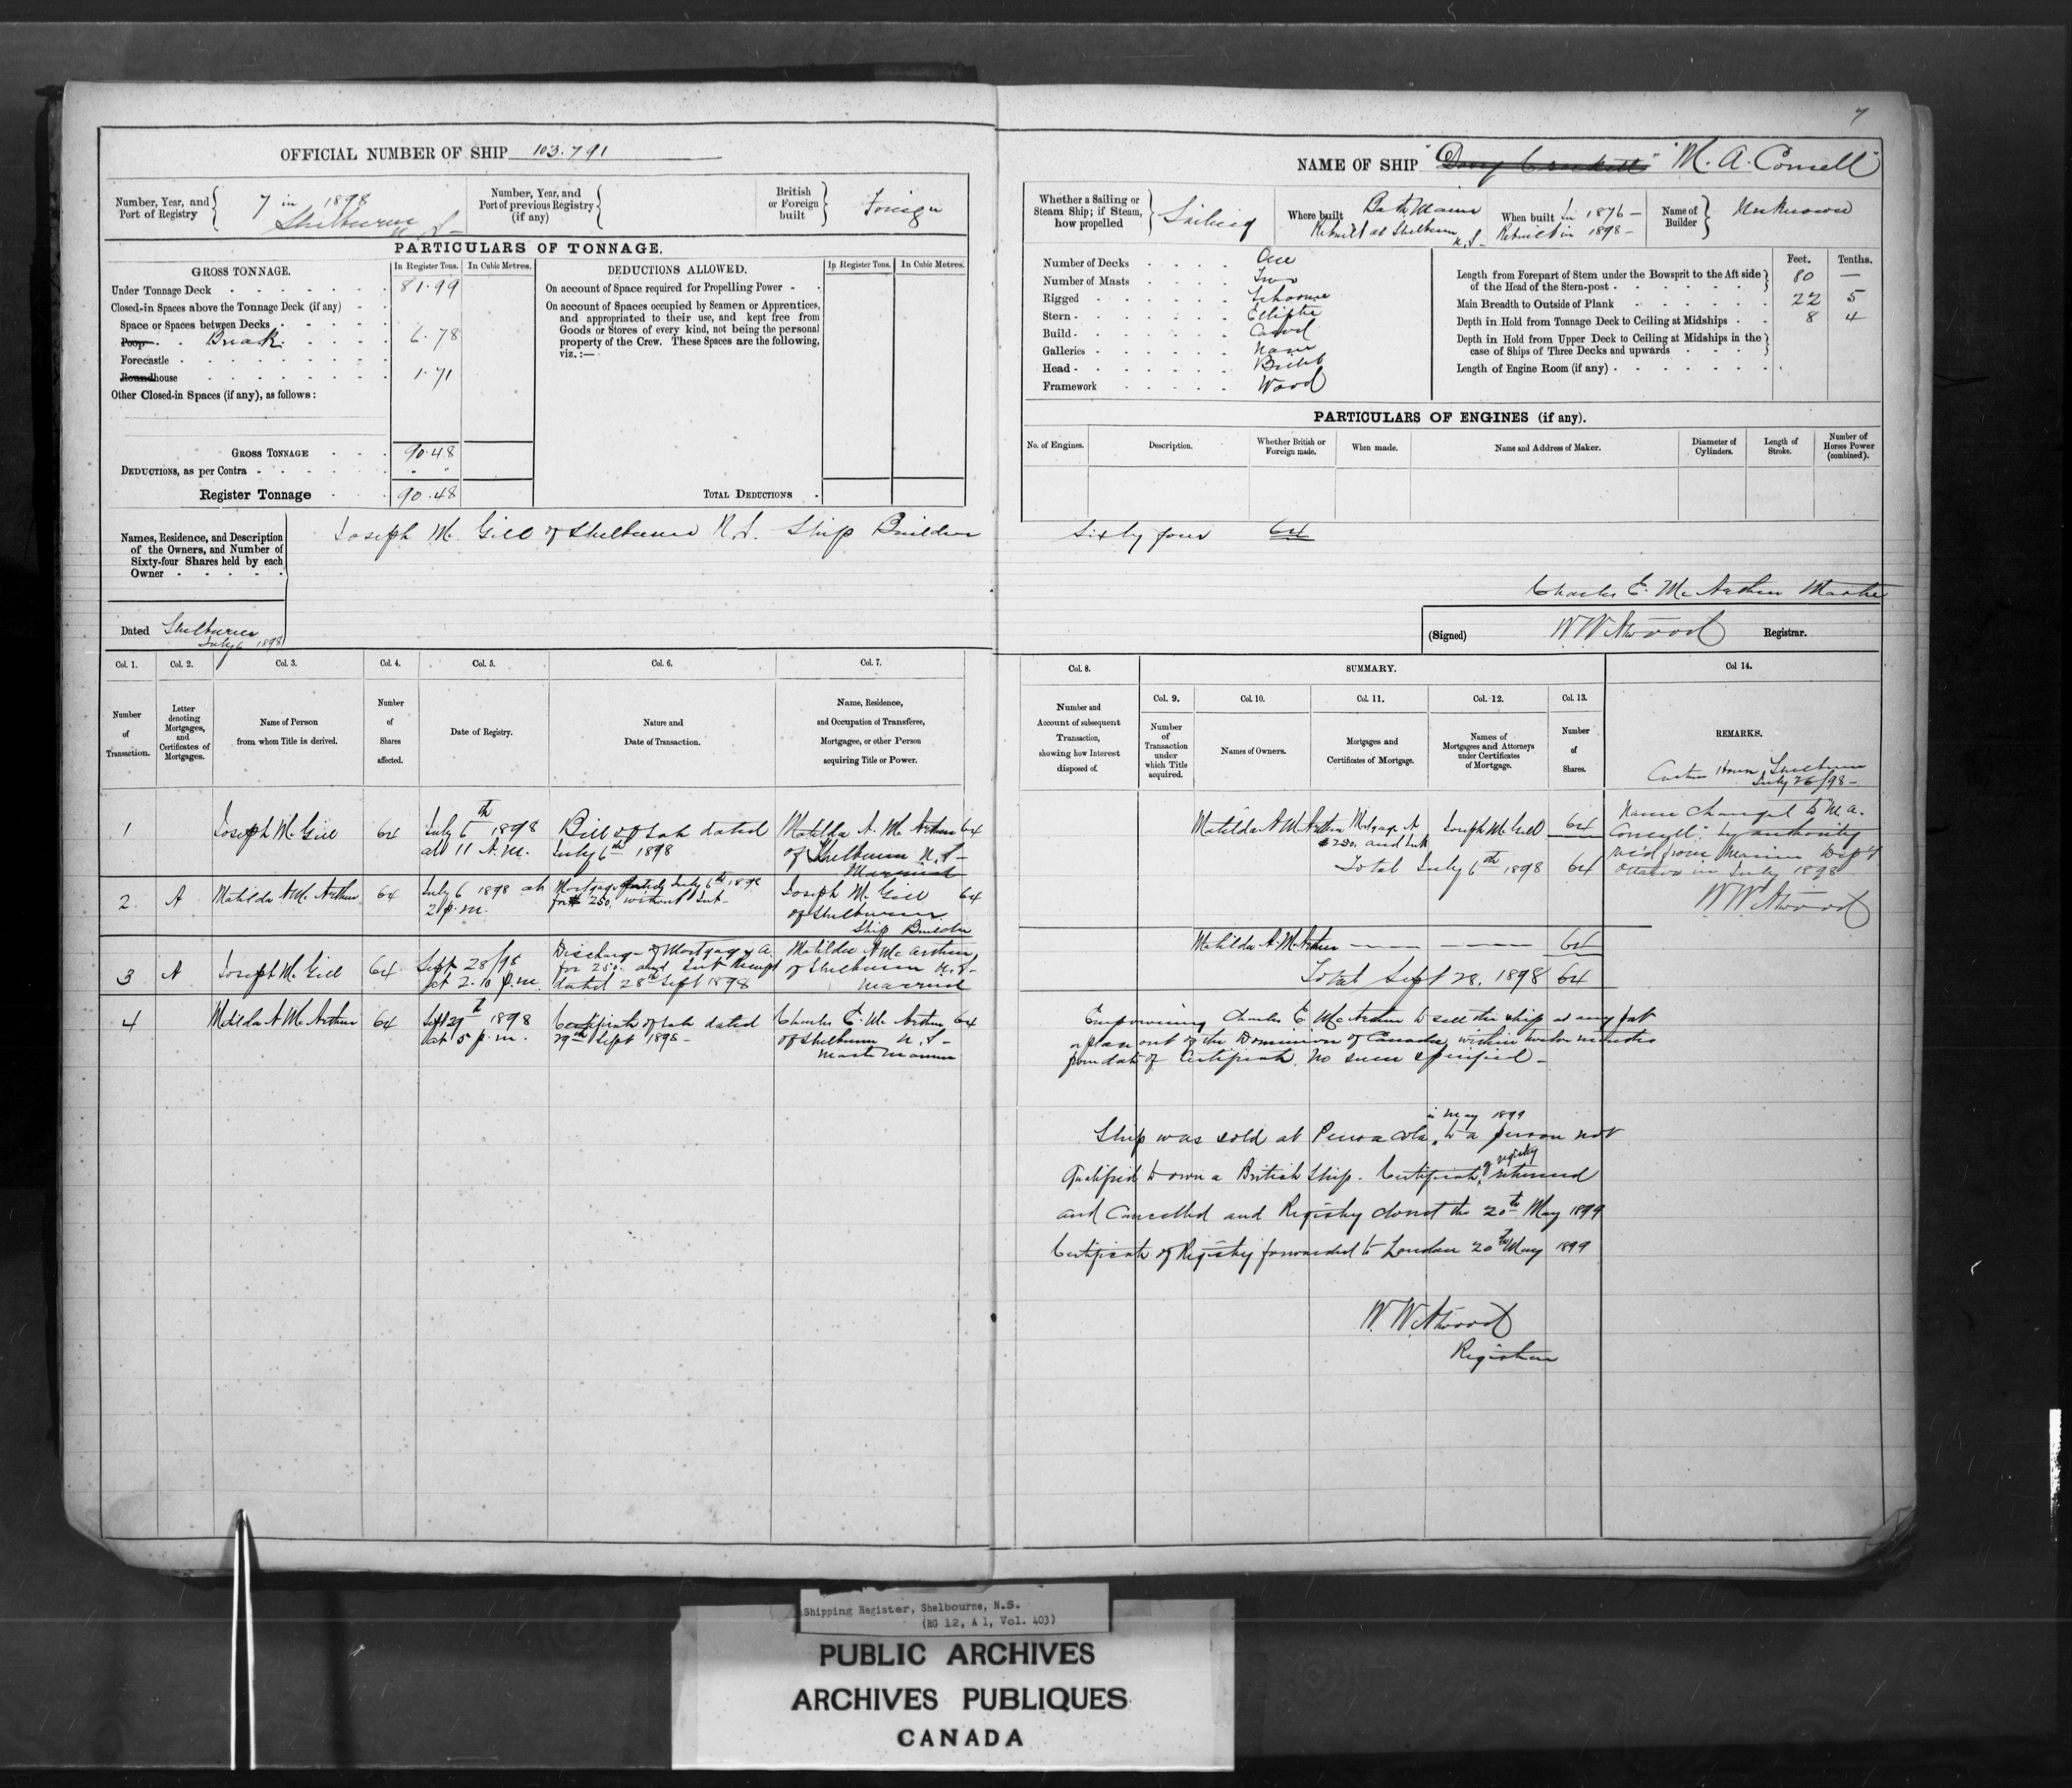 7
OFFICIAL NUMBER OF SHIP 103.791
NAME OF SHIP "Davy Crockett" "M. A. Comell"
Number, Year, and Port of Registry
7 in 1898
Shelburne N.S.
Number, Year, and Port of previous Registry (if any)
British or Foreign built
Foreign
PARTICULARS OF TONNAGE.
GROSS TONNAGE.
In Register Tons.
In Cubic Metres.
Under Tonnage Deck 81.99
Closed-in Spaces above the Tonnage Deck (if any)
Space or Spaces between Decks
Poop Break 6.78
Forecastle
Roundhouse 1.71
Other Closed-in Spaces (if any), as follows:
GROSS TONNAGE 90.48
DEDUCTIONS, as per Contra
Register Tonnage 90.48
DEDUCTIONS ALLOWED.
In Register Tons.
In Cubic Metres.
On account of Space required for Propelling Power
On account of Spaces occupied by Seamen or Apprentices,
and appropriated to their use, and kept free from
Goods or Stores of every kind, not being the personal
property of the Crew. These Spaces are the following,
viz.:—
TOTAL DEDUCTIONS
Whether a Sailing or Steam Ship; if Steam, how propelled
Sailing
Where built
Bath Maine
Rebuilt at Shelburne N.S.
When built in 1876
Rebuilt in 1898
Name of Builder
Unknown
Number of Decks One
Number of Masts Two
Rigged Schooner
Stern Elliptic
Build Carvel
Galleries None
Head Billet
Framework Wood
Feet. Tenths.
Length from Forepart of Stem under the Bowsprit to the Aft side
of the Head of the Stern-post 80 —
Main Breadth to Outside of Plank 22 5
Depth in Hold from Tonnage Deck to Ceiling at Midships 8 4
Depth in Hold from Upper Deck to Ceiling at Midships in the
case of Ships of Three Decks and upwards
Length of Engine Room (if any)
PARTICULARS OF ENGINES (if any).
No. of Engines.
Description.
Whether British or Foreign made.
When made.
Name and Address of Maker.
Diameter of Cylinders.
Length of Stroke.
Number of Horses Power (combined).
Names, Residence, and Description
of the Owners, and Number of
Sixty-four Shares held by each
Owner
Joseph McGill of Shelburne N.S. Ship Builder
Sixty four 64
Charles E. McArthur Master
Dated Shelburne July 6 1898
(Signed) W W Atwood Registrar.
Col. 1.
Number of Transaction.
Col. 2.
Letter denoting Mortgages, and Certificates of Mortgages.
Col. 3.
Name of Person from whom Title is derived.
Col. 4.
Number of Shares affected.
Col. 5.
Date of Registry.
Col. 6.
Nature and Date of Transaction.
Col. 7.
Name, Residence, and Occupation of Transferee, Mortgagee, or other Person acquiring Title or Power.
Col. 8.
Number and Account of subsequent Transaction, showing how Interest disposed of.
SUMMARY.
Col. 9.
Number of Transaction under which Title acquired.
Col. 10.
Names of Owners.
Col. 11.
Mortgages and Certificates of Mortgage.
Col. 12.
Names of Mortgagees and Attorneys under Certificates of Mortgage.
Col. 13.
Number of Shares.
Col 14.
REMARKS.
Custom House, Shelburne
July 26/98 —
Name changed to "M. A.
by authority
rec'd from Marine Dep't
Ottawa in July 1898
W W Atwood
1
Joseph McGill
64
July 6th 1898
at 11 A.M.
Bill of Sale dated
July 6th 1898
Matilda A. McArthur 64
of Shelburne N.S.
Married
Matilda A McArthur
Mortgage A
$250. and Int
Joseph McGill
64
Total July 6th 1898 64
2
A
Matilda A McArthur
64
July 6 1898 at
2 p.m.
Mortgage dated July 6th 1898
for $250. without Int
Joseph McGill 64
of Shelburne
Ship Builder
3
A
Joseph McGill
64
Sept 28/98
at 2.10 p.m.
Discharge of Mortgage A.
for 250. and Int Receipt
dated 28th Sept 1898
Matilda A McArthur
of Shelburne N.S.
Married
Matilda A. McArthur — — 64
Total Sept 28. 1898 64
4
Matilda A McArthur
64
Sept 29th 1898
at 5 p.m.
Certificate of Sale dated
29th Sept 1898 —
Charles E. McArthur 64
of Shelburne N.S.
Master Mariner
Empowering Charles E McArthur to sell the ship at any port
or place out of the Dominion of Canada within twelve months
from date of Certificate. No sum specified —
Ship was sold at Pensacola, in May 1899 to a person not
Qualified to own a British Ship. Certificate of registry returned
and Cancelled and Registry closed the 20th May 1899
Certificate of Registry forwarded to London 20th May 1899
W W Atwood
Registrar
Shipping Register, Shelbourne, N.S.
(RG 12, A 1, Vol. 403)
PUBLIC ARCHIVES
ARCHIVES PUBLIQUES
CANADA